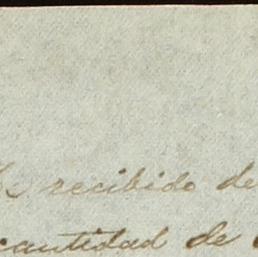 He recibido de
cantidad de